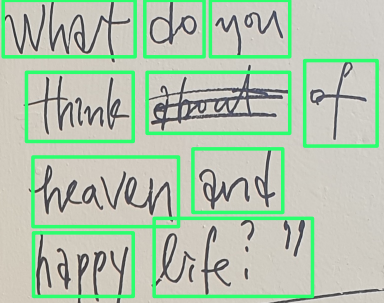 What do you
think about of
heaven and
happy life?"